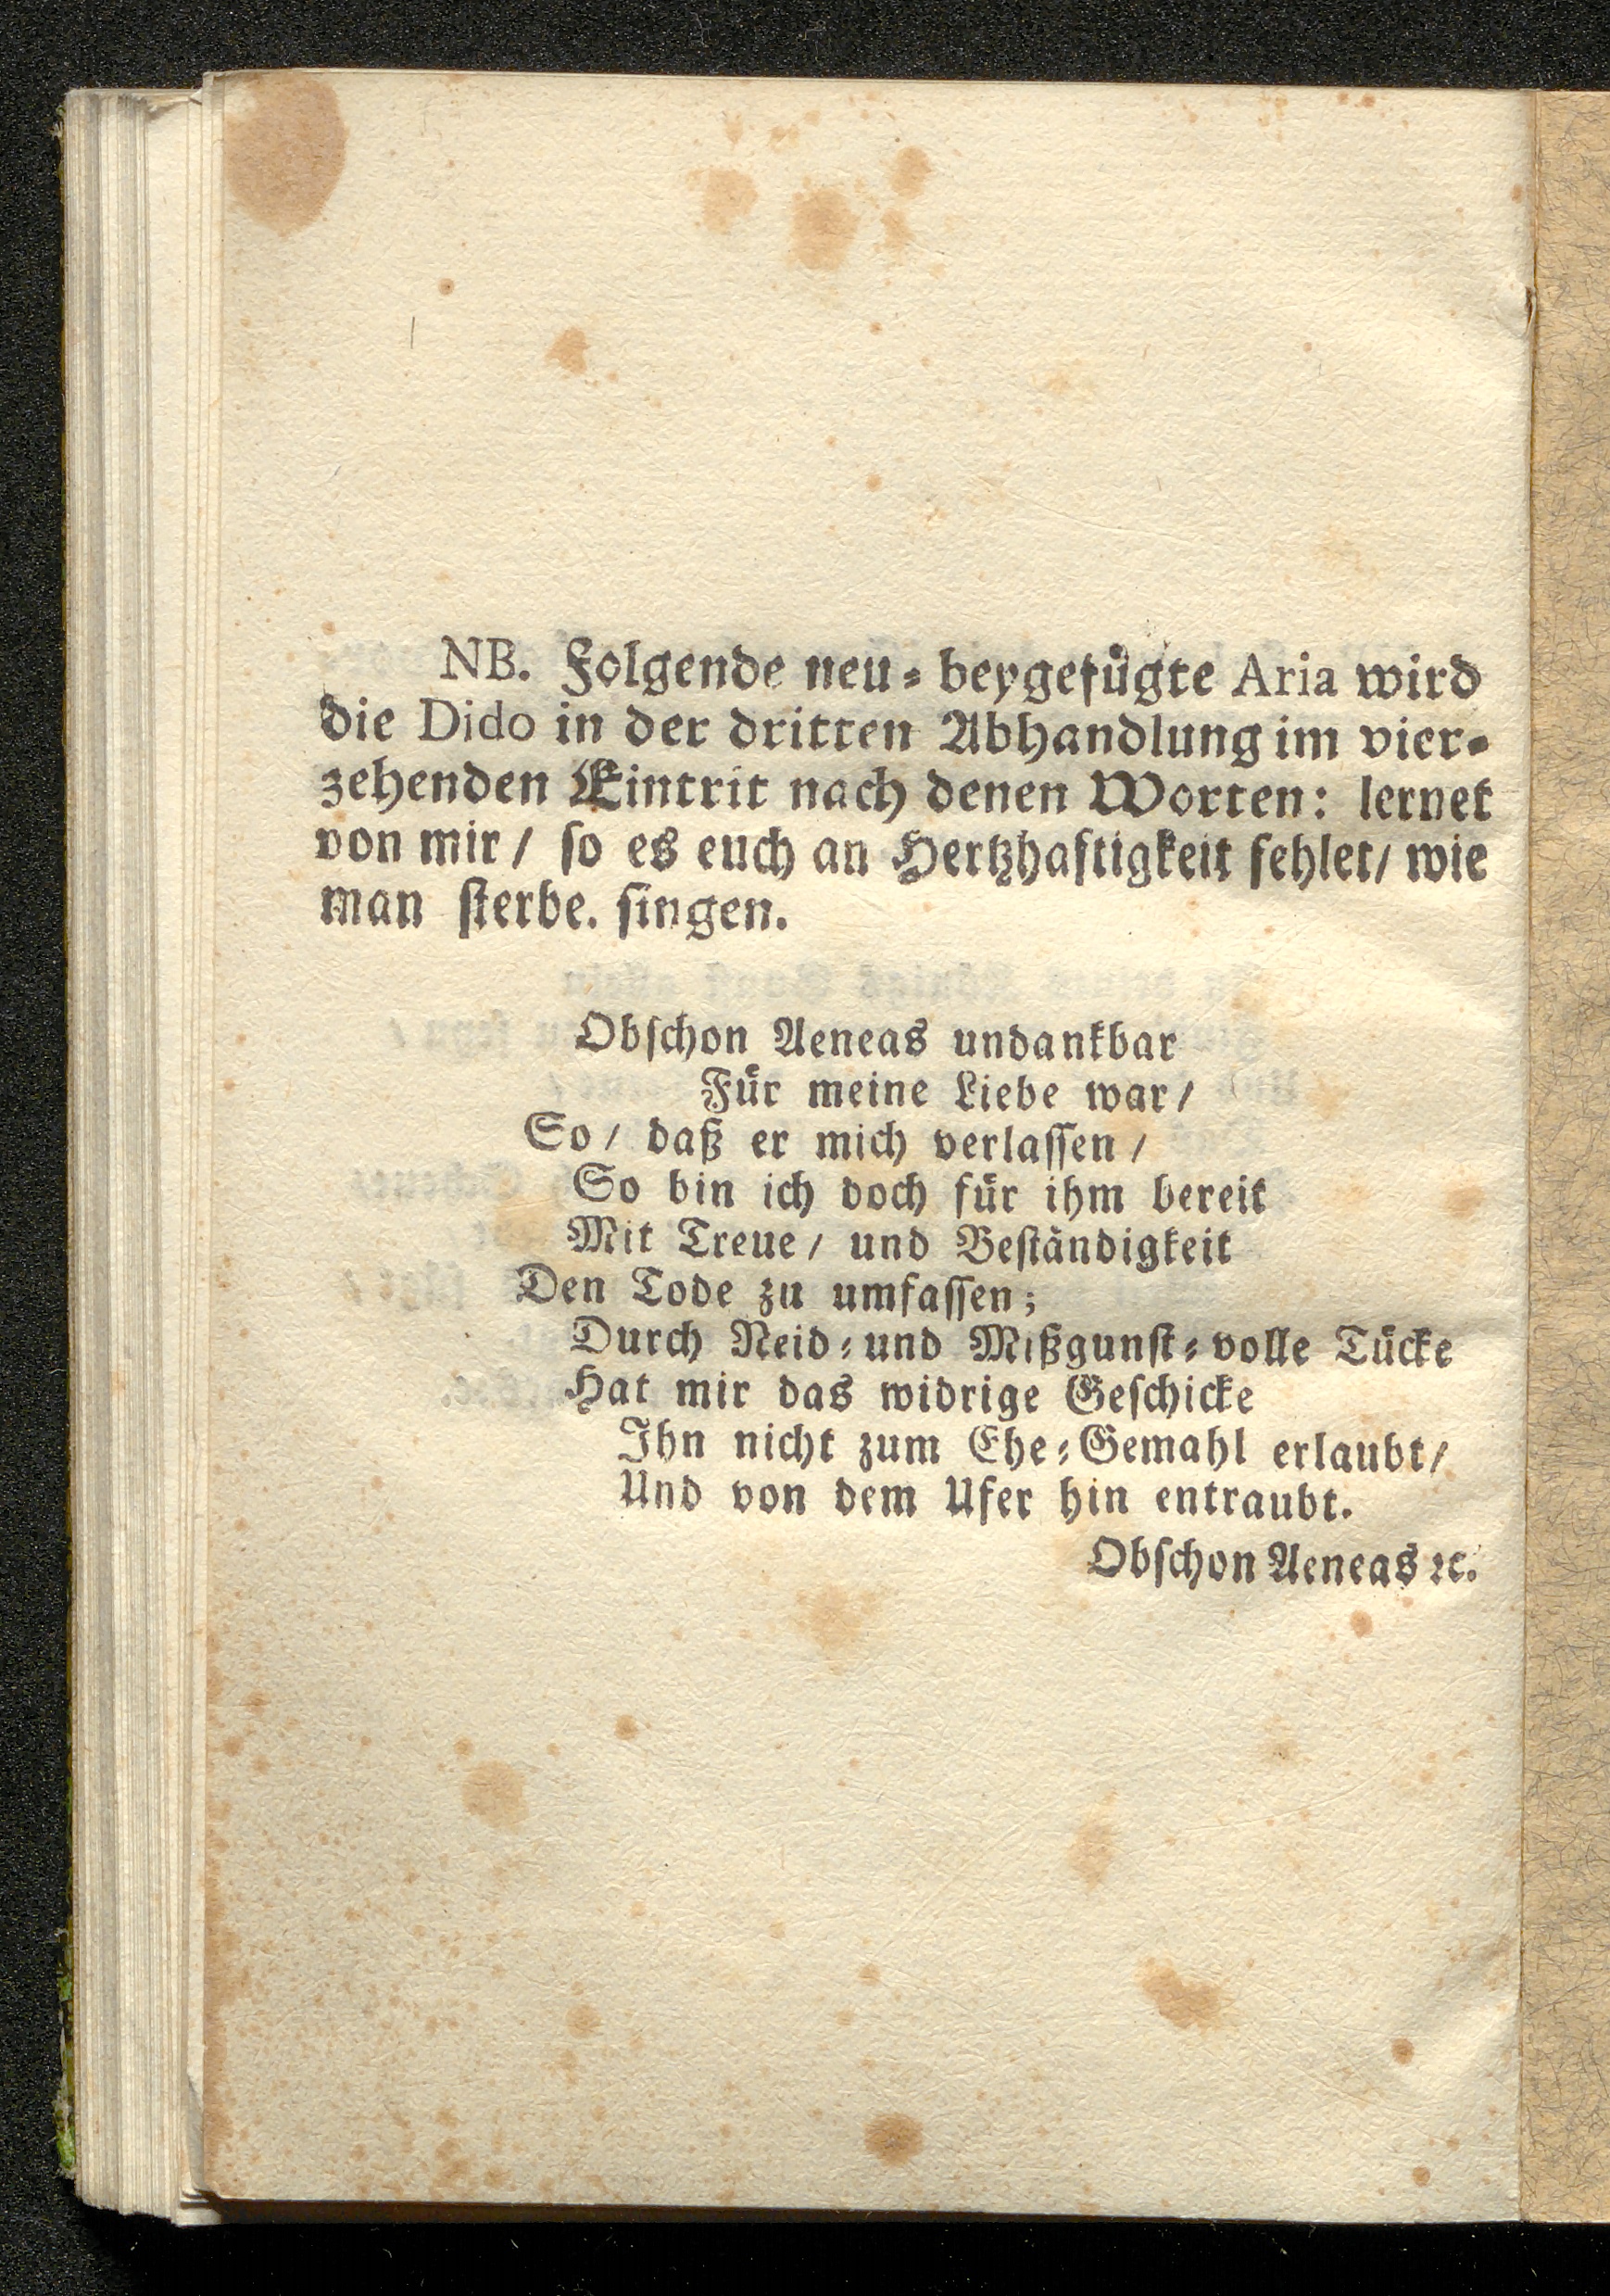 NB. Folgende neu-beygefügte Aria wird
die Dido in der dritten Abhandlung im vier-
zehenden Eintrit nach denen Worten: lernet
von mir / so es euch an Hertzhaftigkeit fehlet / wie
man sterbe. singen.
Obschon Aeneas undankbar
Für meine Liebe war /
So / daß er mich verlassen /
So bin ich doch für ihm bereit
Mit Treue / und Beständigkeit
Den Tode zu umfassen;
Durch Neid- und Mißgunst-volle Tücke
Hat mir das widrige Geschicke
Ihn nicht zum Ehe-Gemahl erlaubt /
Und von dem Ufer hin entraubt.
Obschon Aeneas ꝛc.